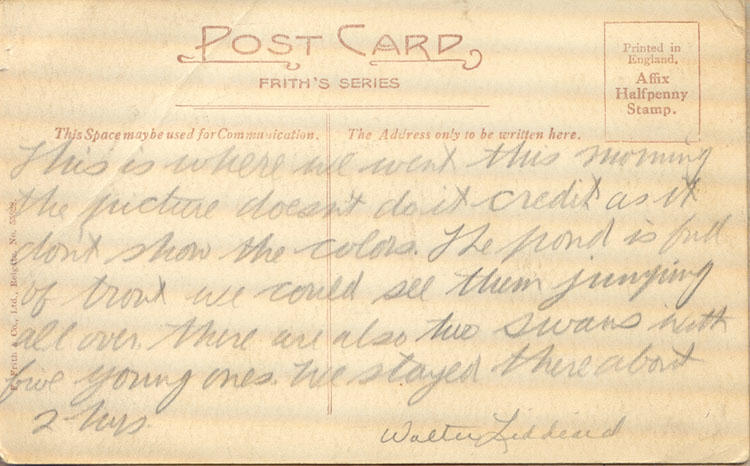 POST CARD
FRITH'S SERIES
Printed in
England.
Affix
Halfpenny
Stamp.
This Space may be used for Communication.
The Address only to be written here.
This is where we went this morning
the picture doesn't do it credit as it
dont show the colors. The pond is full
of trout we could see them jumping
all over. there are also two swans with
five young ones. We stayed there about
2 hrs.
Walter Liddiard
Frith & Co., Ltd., Reigate, No.